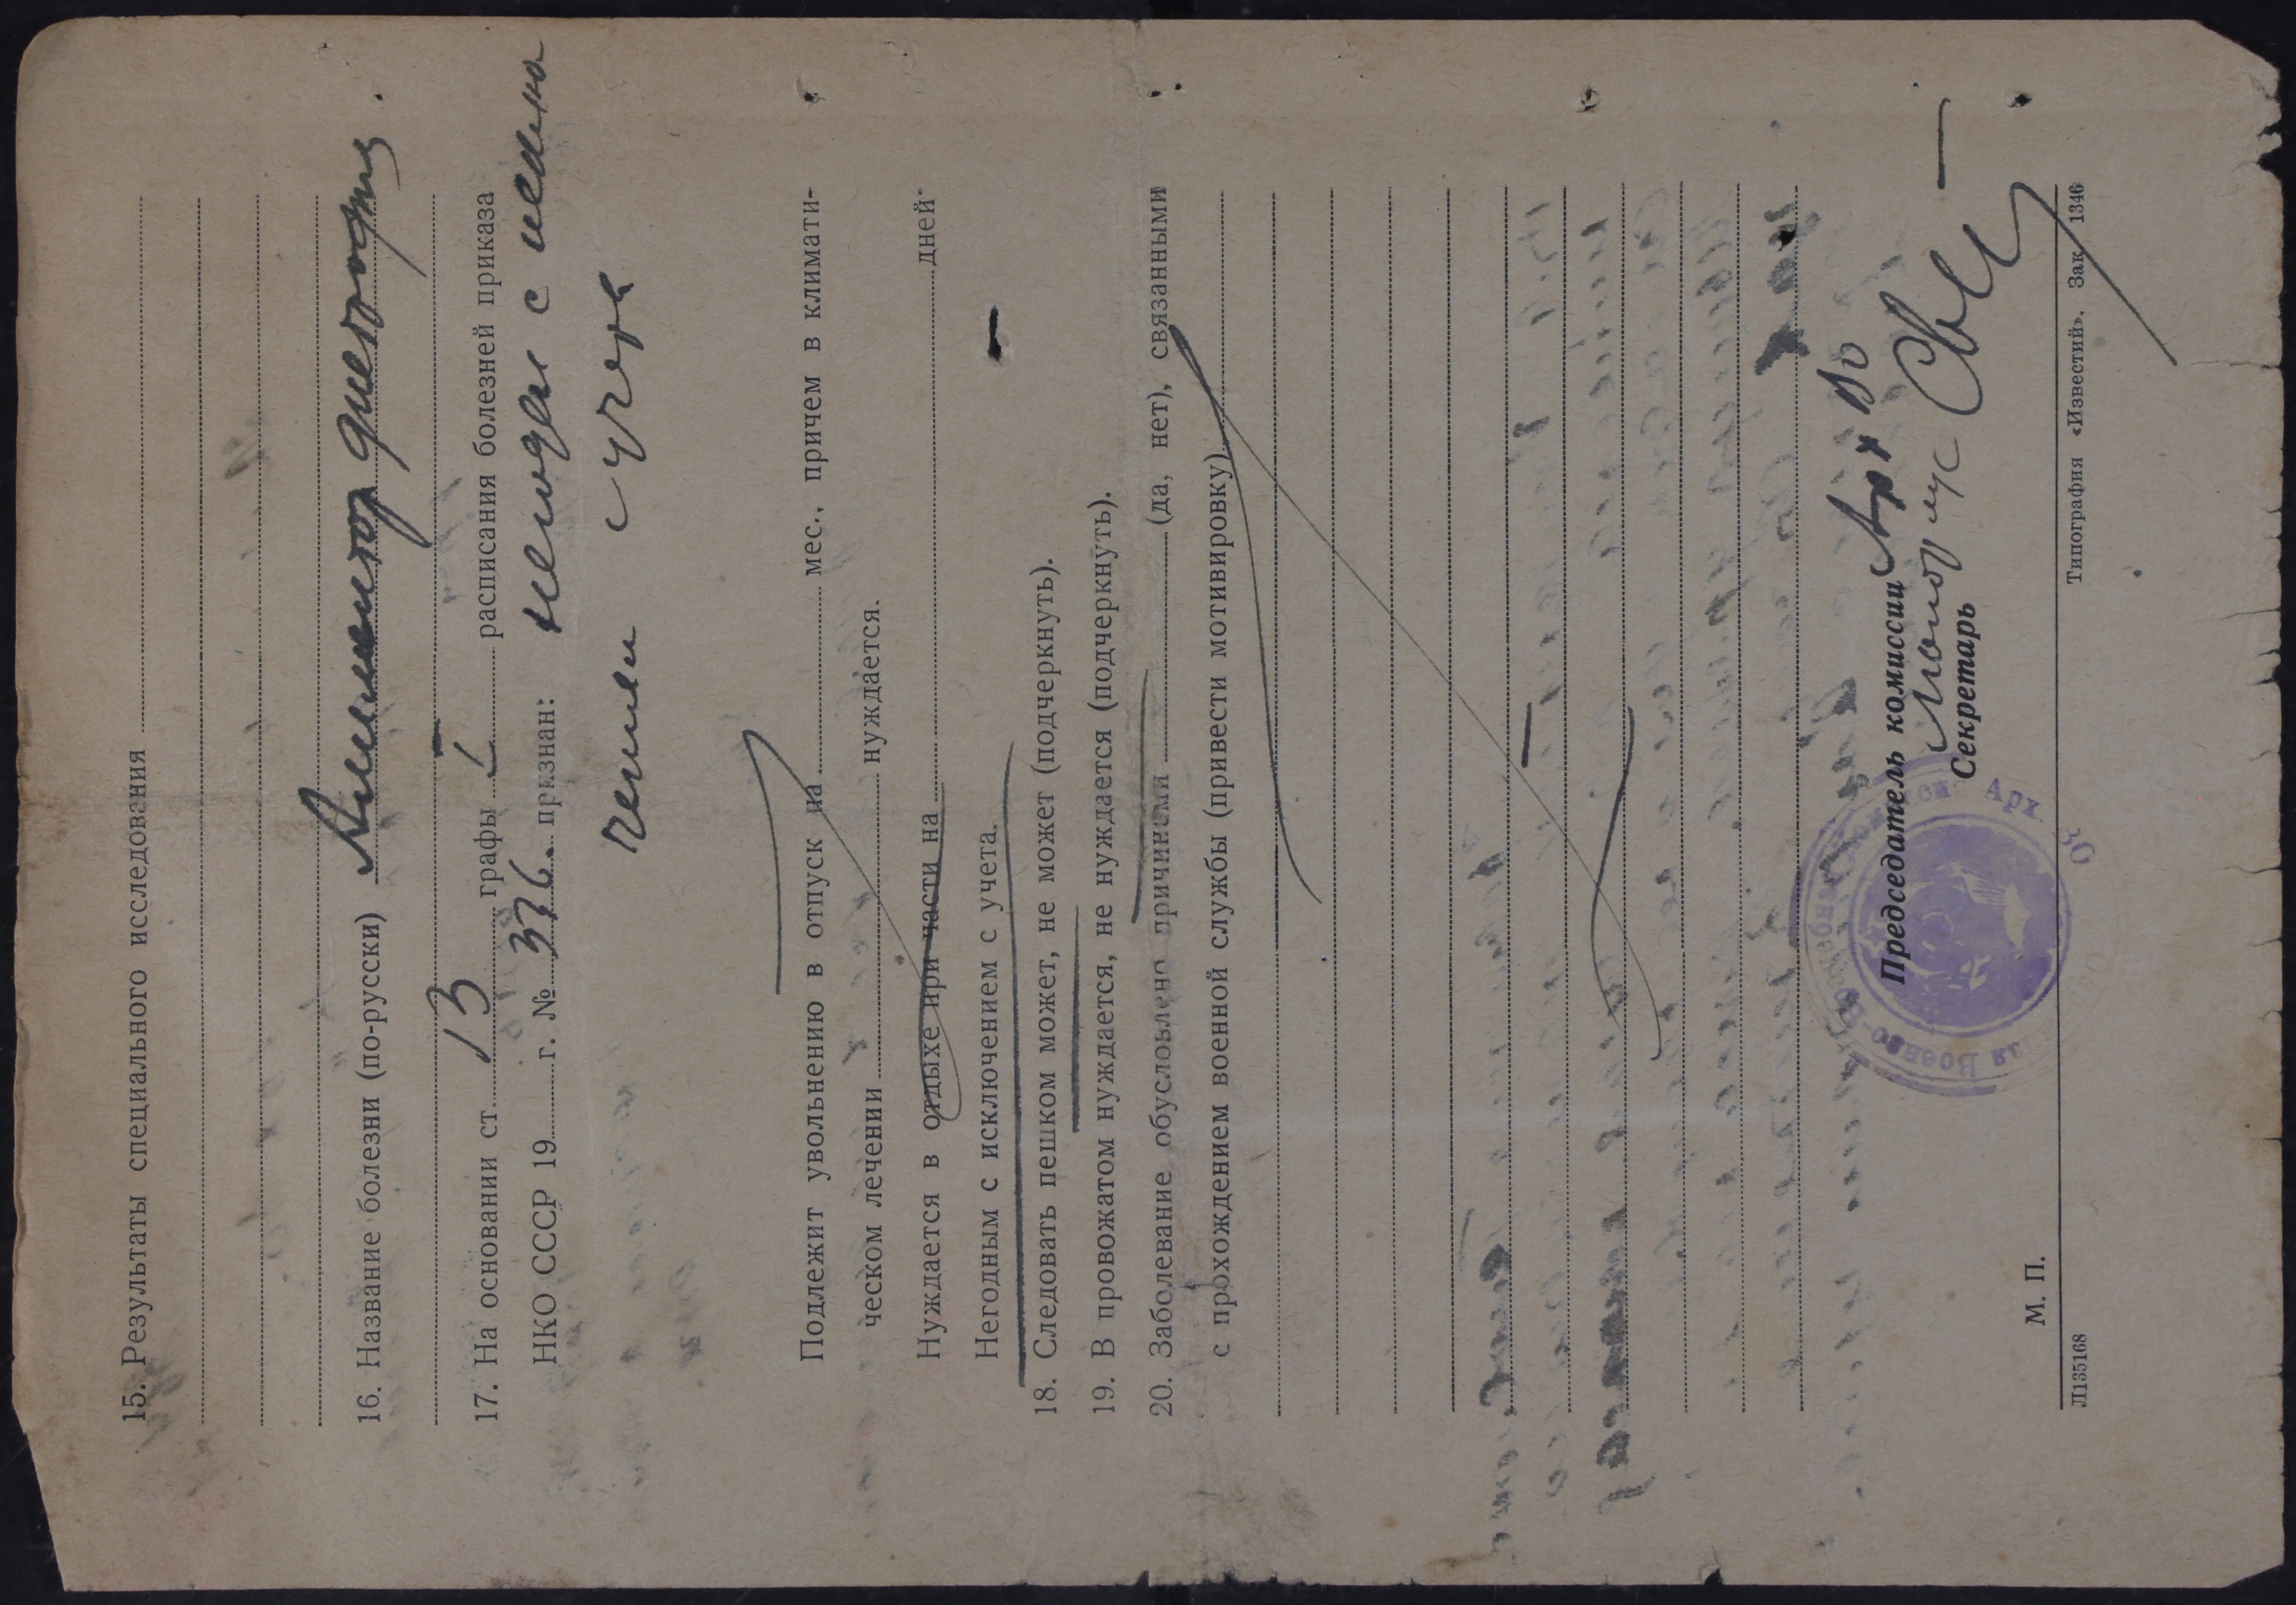 15. Результаты специального исследования
16. Название болезни (по-русски) Алиментар дистрофия.
17. На основании ст. 13 графы I расписания болезней приказа
НКО СССР 19 г. № 336 признан: негоден с исклю
чением с учета
Подлежит увольнению в отпуск на мес., причем в климати-
ческом лечении нуждается.
Нуждается в отдыхе при части на дней.
Негодным с исключением с учета.
18. Следовать пешком может, не может (подчеркнуть).
19. В провожатом нуждается, не нуждается (подчеркнуть).
20. Заболевание обусловлено причинами (да, нет), связанными
с прохождением военной службы (привести мотивировку)
Председатель комиссии
Секретарь
М. П.
Л135168 Типография «Известий». Зак. 1346